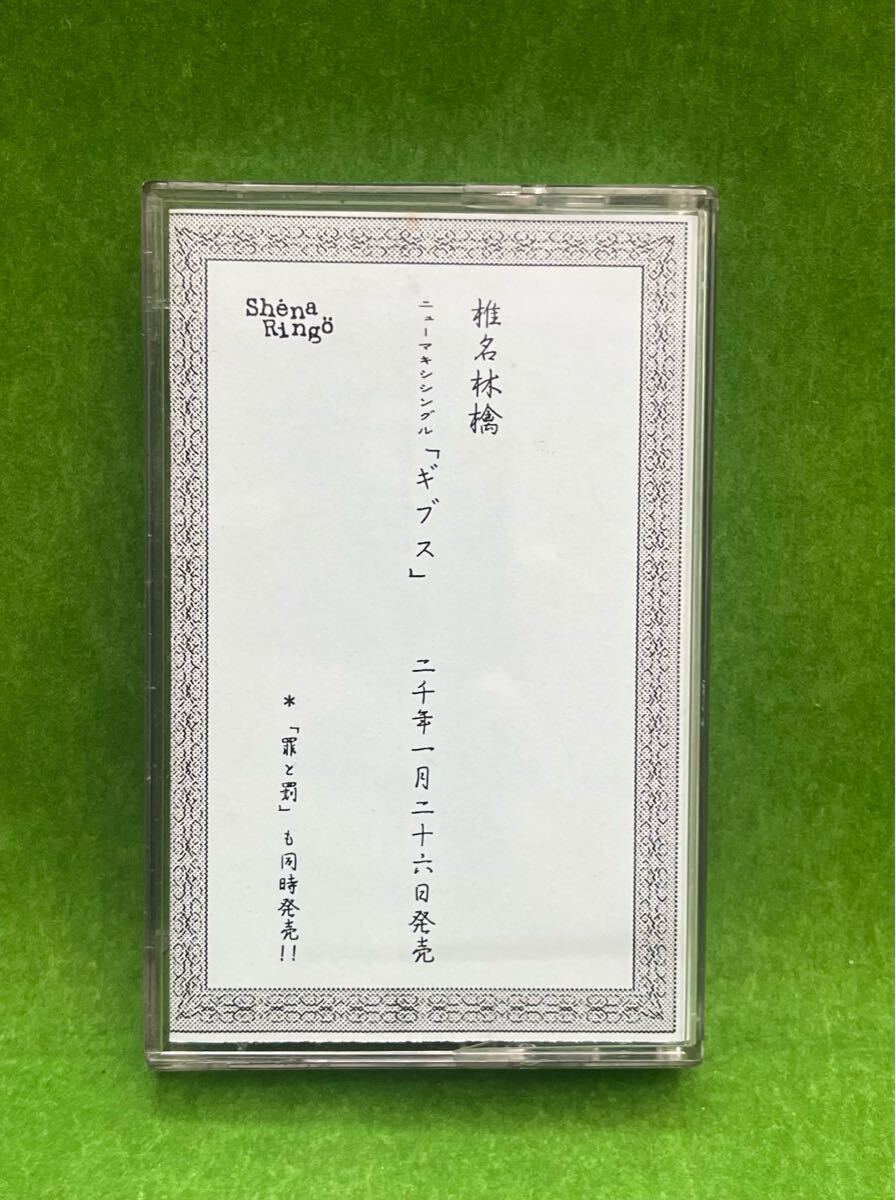 椎名林檎
ニューマキシシングル「ギブス」 二千年一月二十六日発売
*「罪と罰」も同時発売!!
Shéna
Ringö